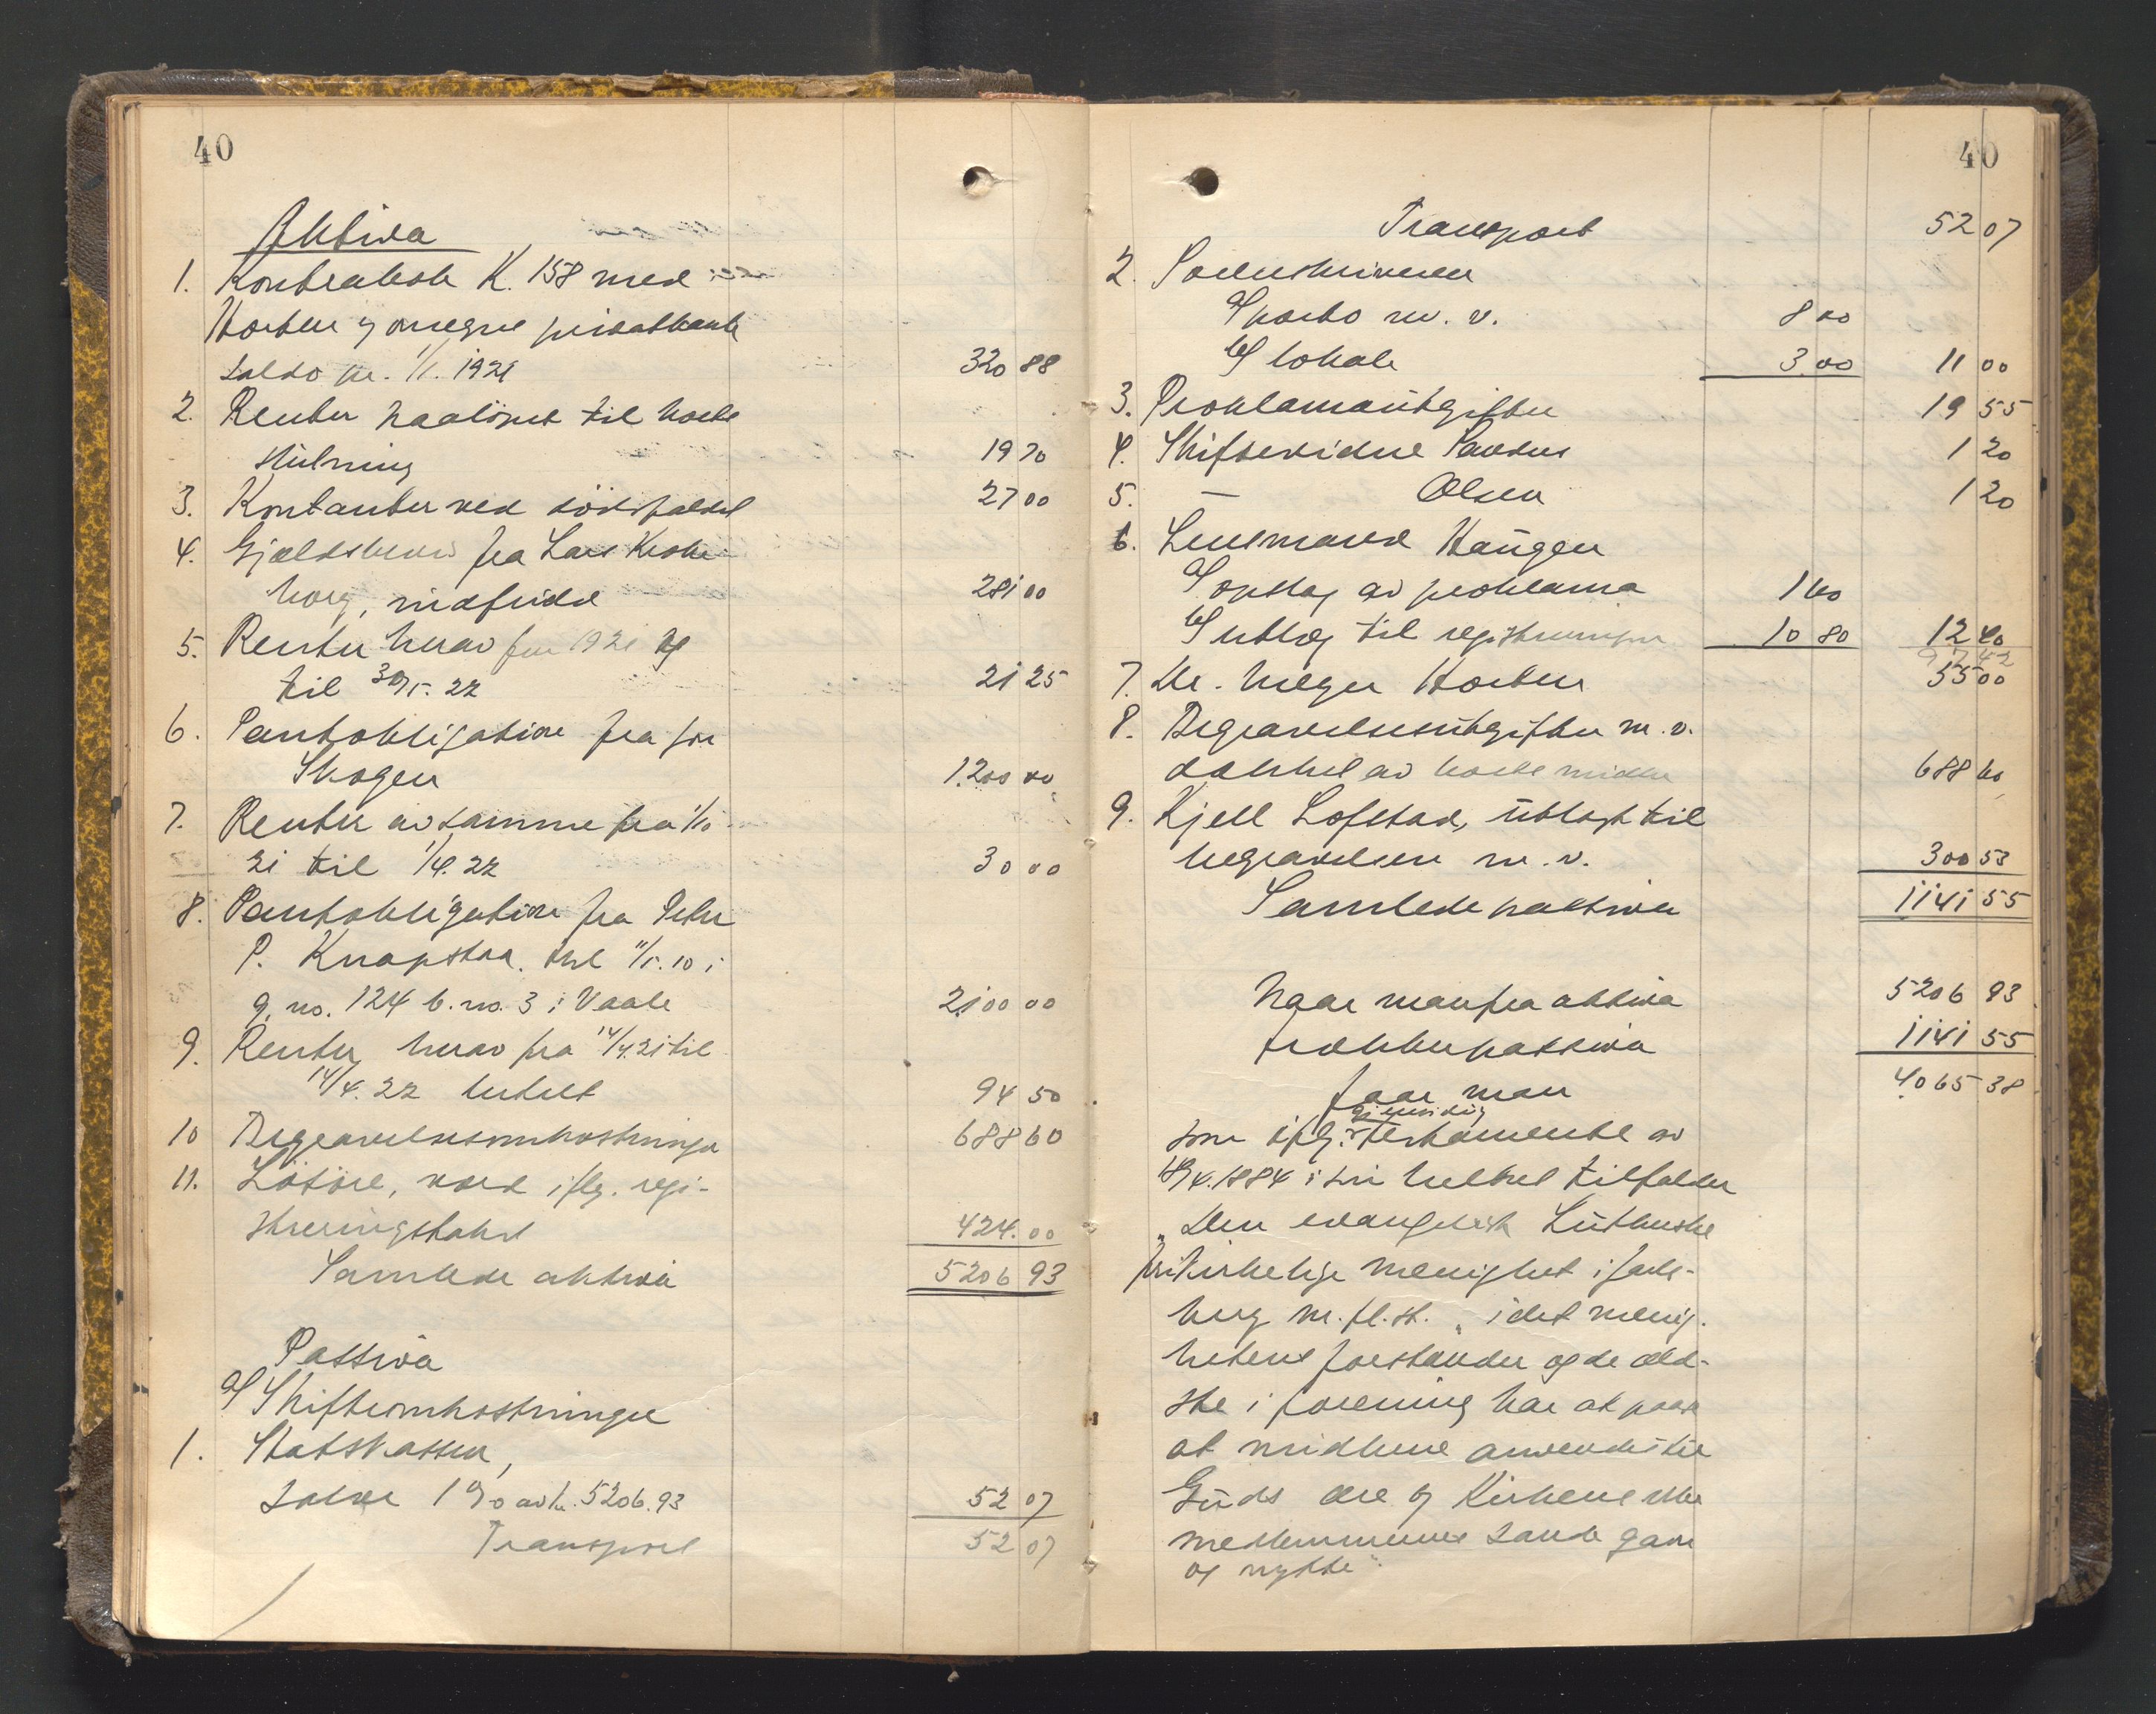 40
Aktiva
1. Kontrabok K. 158 med
Horten og omegns privatbank
saldo pr. 1/1. 1921 320 88
2. Renter paalöpet til boets
slutning 19 70
3. Kontanter ved dödsfaldet 27 00
4. Gjældsbevis fra Lars
berg, indfridd 281 00
5. Renter herav for 1921 og
til 30/5. 22 21 25
6. Pantobligation fra
Skogen 1.200 00
7. Renter av samme fra 1/10
21 til 1/4. 22 30 00
8. Pantobligation fra Peter
P. Knapstad. thl 11/5. 10 i
g. no. 124 b. no. 3 i Vaale 2100 00
9. Renter herav fra 14/4. 21 til
14/4. 22 betalt 94 50
10 Begravelsesomkostninger 688 60
11. Lösöre, værd iflg. regi-
streringstakst 424. 00
Samlede aktiva 5206 93
Passiva
a) Skifteomkostninger
1. Statskassen,
1 % av kr. 5206.93 52 07
Transport 52 07
40
Transport 52 07
2. Sorenskriveren
a) porto m. v. 8 00
b) lokale 3.00 11 00
3. Proklamautgifter 19 55
4. Skiftevidne Paulsen 1 20
5. — Olsen 1 20
6. Lensmand Haugen
a) opslag av proklama 1 60
b) utlæg til registreringen 10 80 12 40
97 42
7. Dr. Meyer Horten 55 00
8. Begravelsesutgifter m. v.
dækket av boets midler 688 60
9. Kjell Lofstad, utlagt til
begravelsen m. v. 300 53
Samlede passiva 1141 55
Naar man fra aktiva 5206 93
trækker passiva 1141 55
faar man 4065 38
gjensidig
som iflg. testamente av
18/4. 1884 i sin helhet tilfalder
„Den evangelisk Lutherske
frikirkelige menighet i Jarls-
berg m. fl. st. „ idet menig-
hetens forstander og de æld-
ste i forening har at paase
at midlerne anvendes til
Guds ære og Kirkens eller
medlemmernes sande gavn
og nytte“.